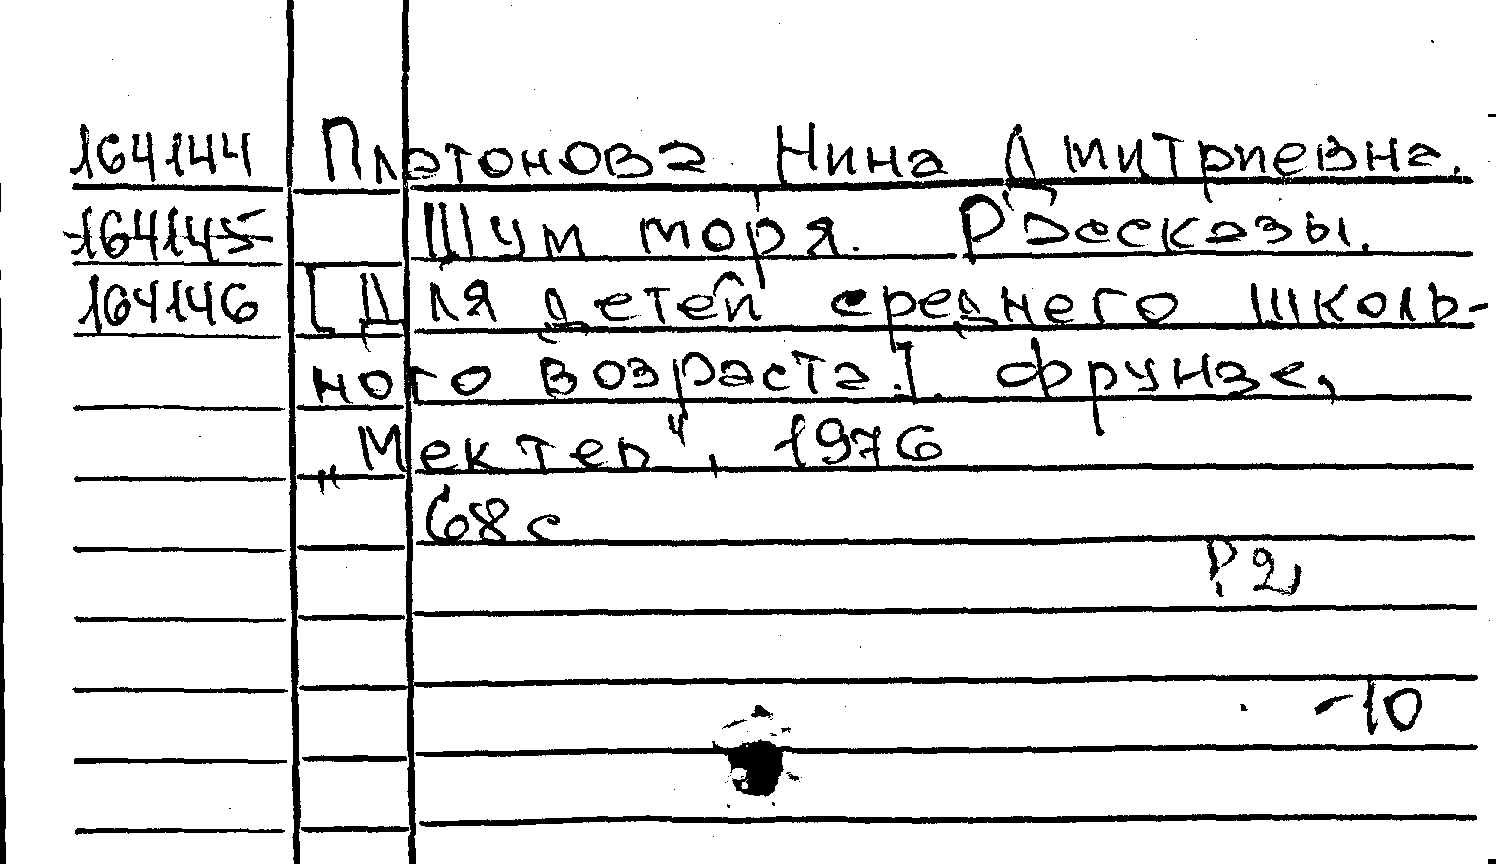 164144 Платонова Нина Дмитриевна.
164145 Шум моря. Рассказы.
164146 [Для детей среднего школь-
ного возраста.]. Фрунзе,
„Мектеп", 1976
68с
Р2
-10